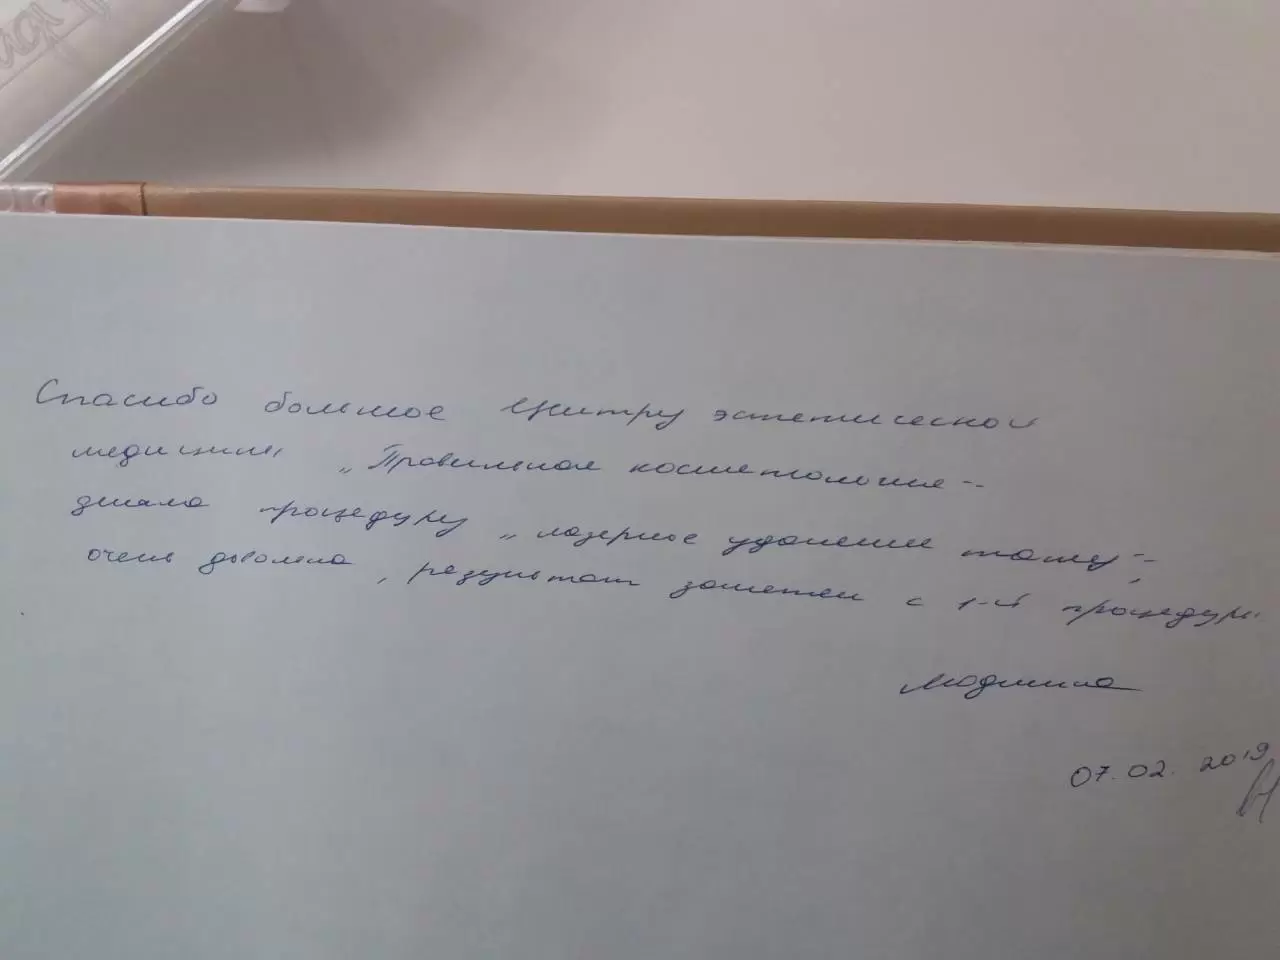 Спасибо большое Центру эстетической
медицины „Правильная косметология"
делала процедуру „лазерное удаление тату",
очень довольна, результат заметен с 1-й процедуры.
Людмила
07.02.2019